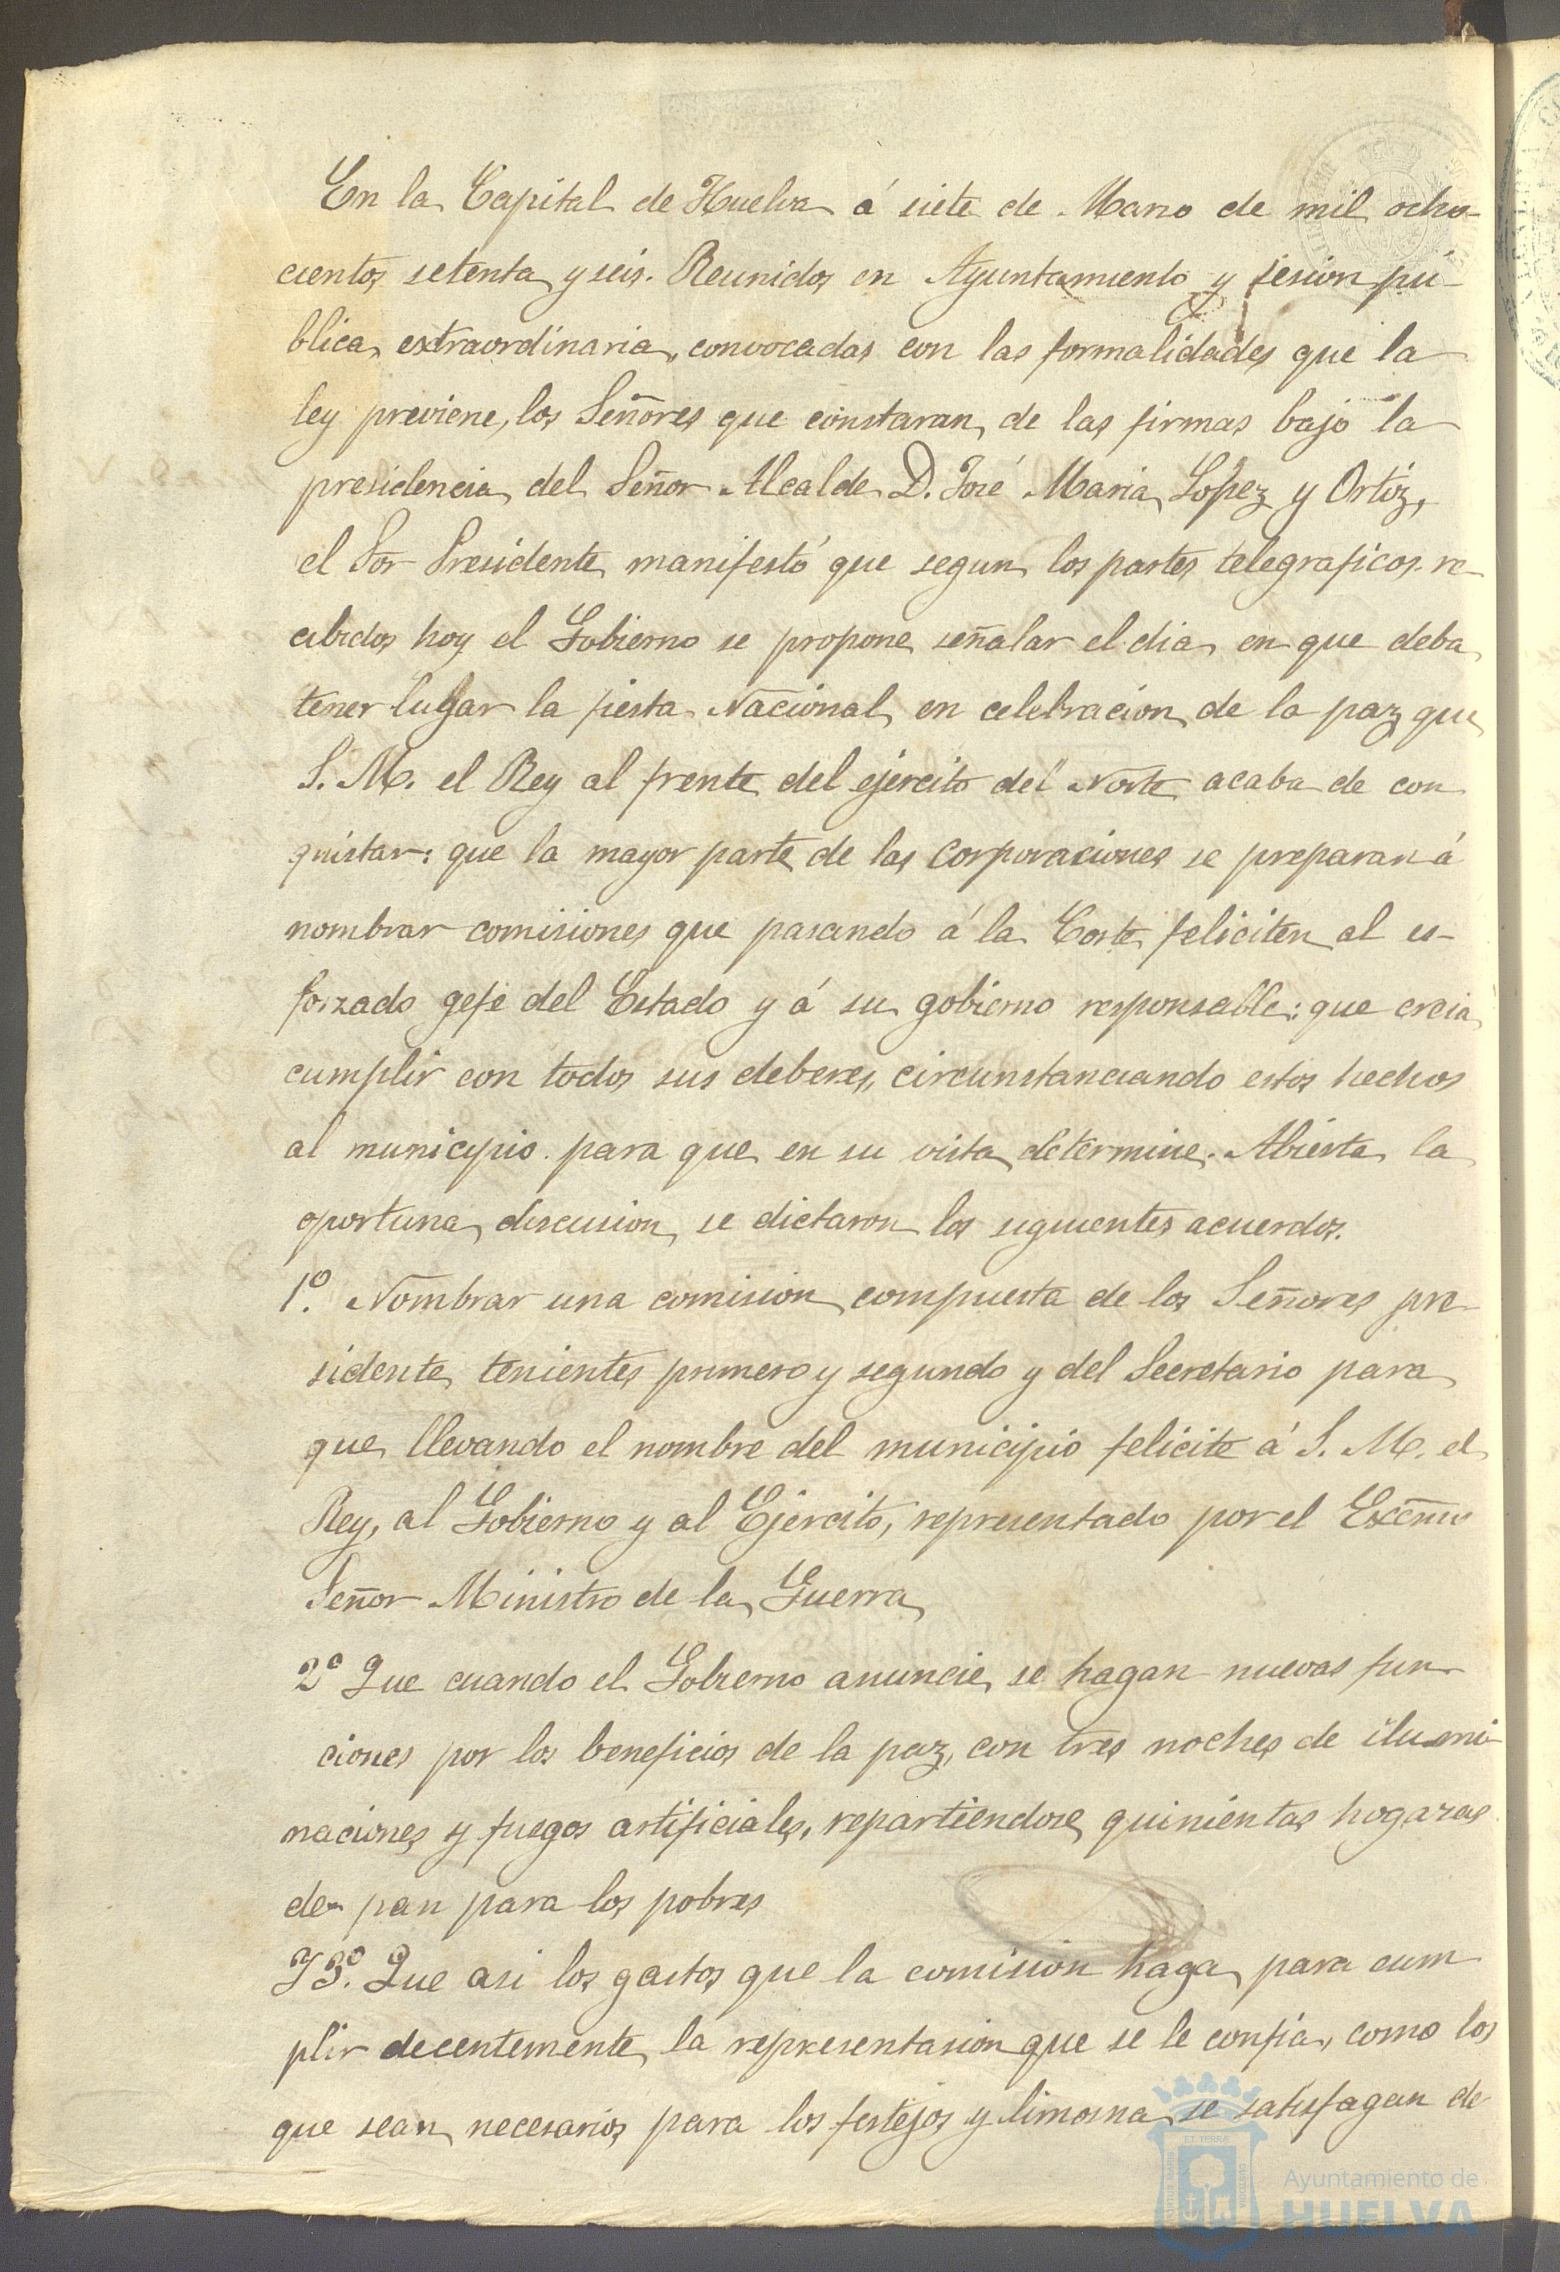 En la Capital de Huelva á siete de Marzo de mil ocho-
cientos setenta y seis. Reunidos en Ayuntamiento y sesion pú-
blica extraordinaria, convocadas con las formalidades que la
ley previene, los Señores que constaran de las firmas bajo la
presidencia del Señor Alcalde D. José Maria Lopez y Ortiz,
el Sor Presidente manifestó que segun los partes telegraficos re-
cibidos hoy el Gobierno se propone señalar el dia en que deba
tener lugar la fiesta Nacional en celebracion de la paz que
S. M. el Rey al frente del ejercito del Norte acaba de con
quistar: que la mayor parte de las corporaciones se preparan á
nombrar comisiones que pasando á la Corte feliciten al es-
forzado gefe del Estado y á su gobierno responsable: que creia
cumplir con todos sus deberes, circunstanciando estos hechos
al municipio para que en su vista determine. Abierta la
oportuna discusion se dictaron los siguientes acuerdos.
1º. Nombrar una comision compuesta de los Señores pre-
sidente, tenientes primero y segundo y del Secretario para
que llevando el nombre del municipio felicite á S. M. el
Rey, al Gobierno y al Ejército, representado por el Excmo
Señor Ministro de la Guerra
2º Que cuando el Gobierno anuncie se hagan nuevas fun-
ciones por los beneficios de la paz, con tres noches de ilumi-
naciones y fuegos artificiales, repartiendose quinientas hogazas
de pan para los pobres
Y 3º. Que asi los gastos que la comision haga para cum
plir decentemente la representasion que se le confia, como los
que sean necesarios para los festejos y limosna se satisfagan de
Ayuntamiento de
HUELVA